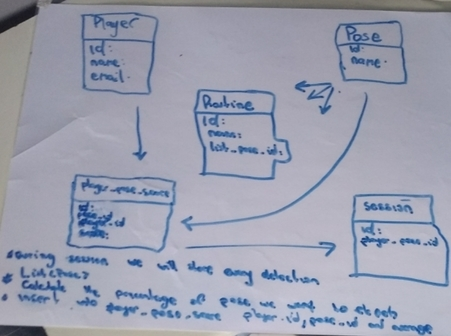 Player
id:
name:
email:
Pose
id:
name:
Routine
id:
name:
list_pose_id:
player_pose_score
id:
pose_id
player_id
score:
session
id:
player_pose_id
during session we will store every detection
List<Pose>
Calculate the percentage of pose we want to
insert into player_pose_score player_id, pose_id and average